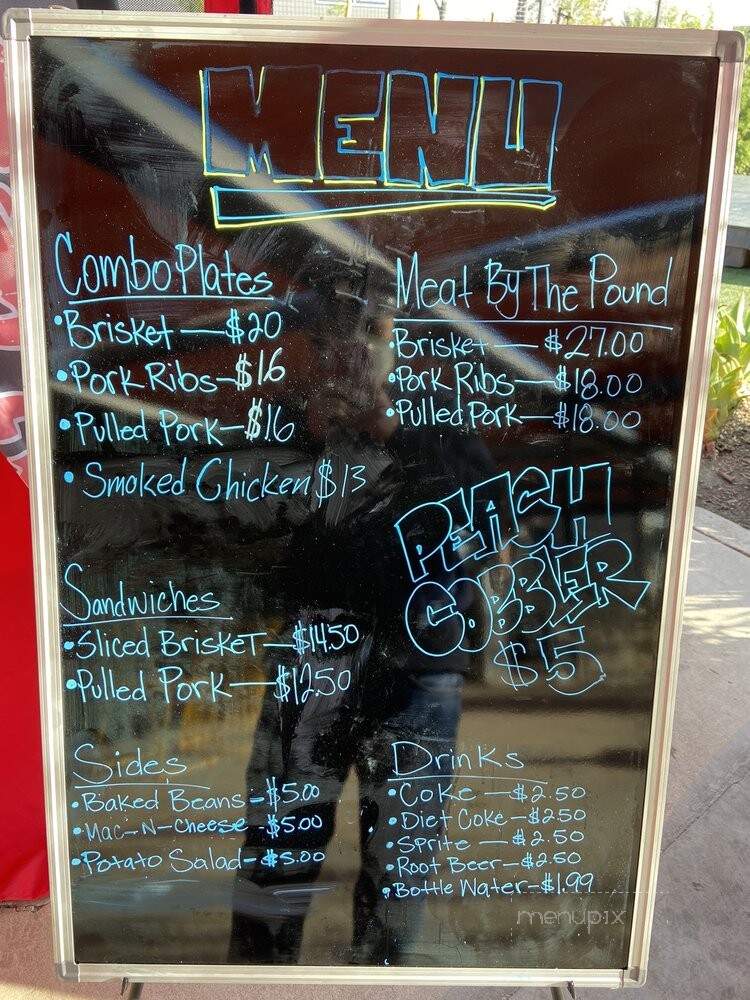 MENU
Combo Plates
•Brisket—$20
•Pork Ribs—$16
•Pulled Pork—$16
•Smoked Chicken $13
Sandwiches
•Sliced Brisket—$14.50
•Pulled Pork—$12.50
Sides
•Baked Beans-$5.00
•Mac-N-Cheese-$5.00
•Potato Salad-$5.00
Meat By The Pound
•Brisket—$27.00
•Pork Ribs—$18.00
•Pulled Pork—$18.00
PEACH
COBBLER
$5
Drinks
•Coke—$2.50
•Diet Coke—$2.50
•Sprite—$2.50
•Root Beer—$2.50
•Bottle Water-$1.99
menupix